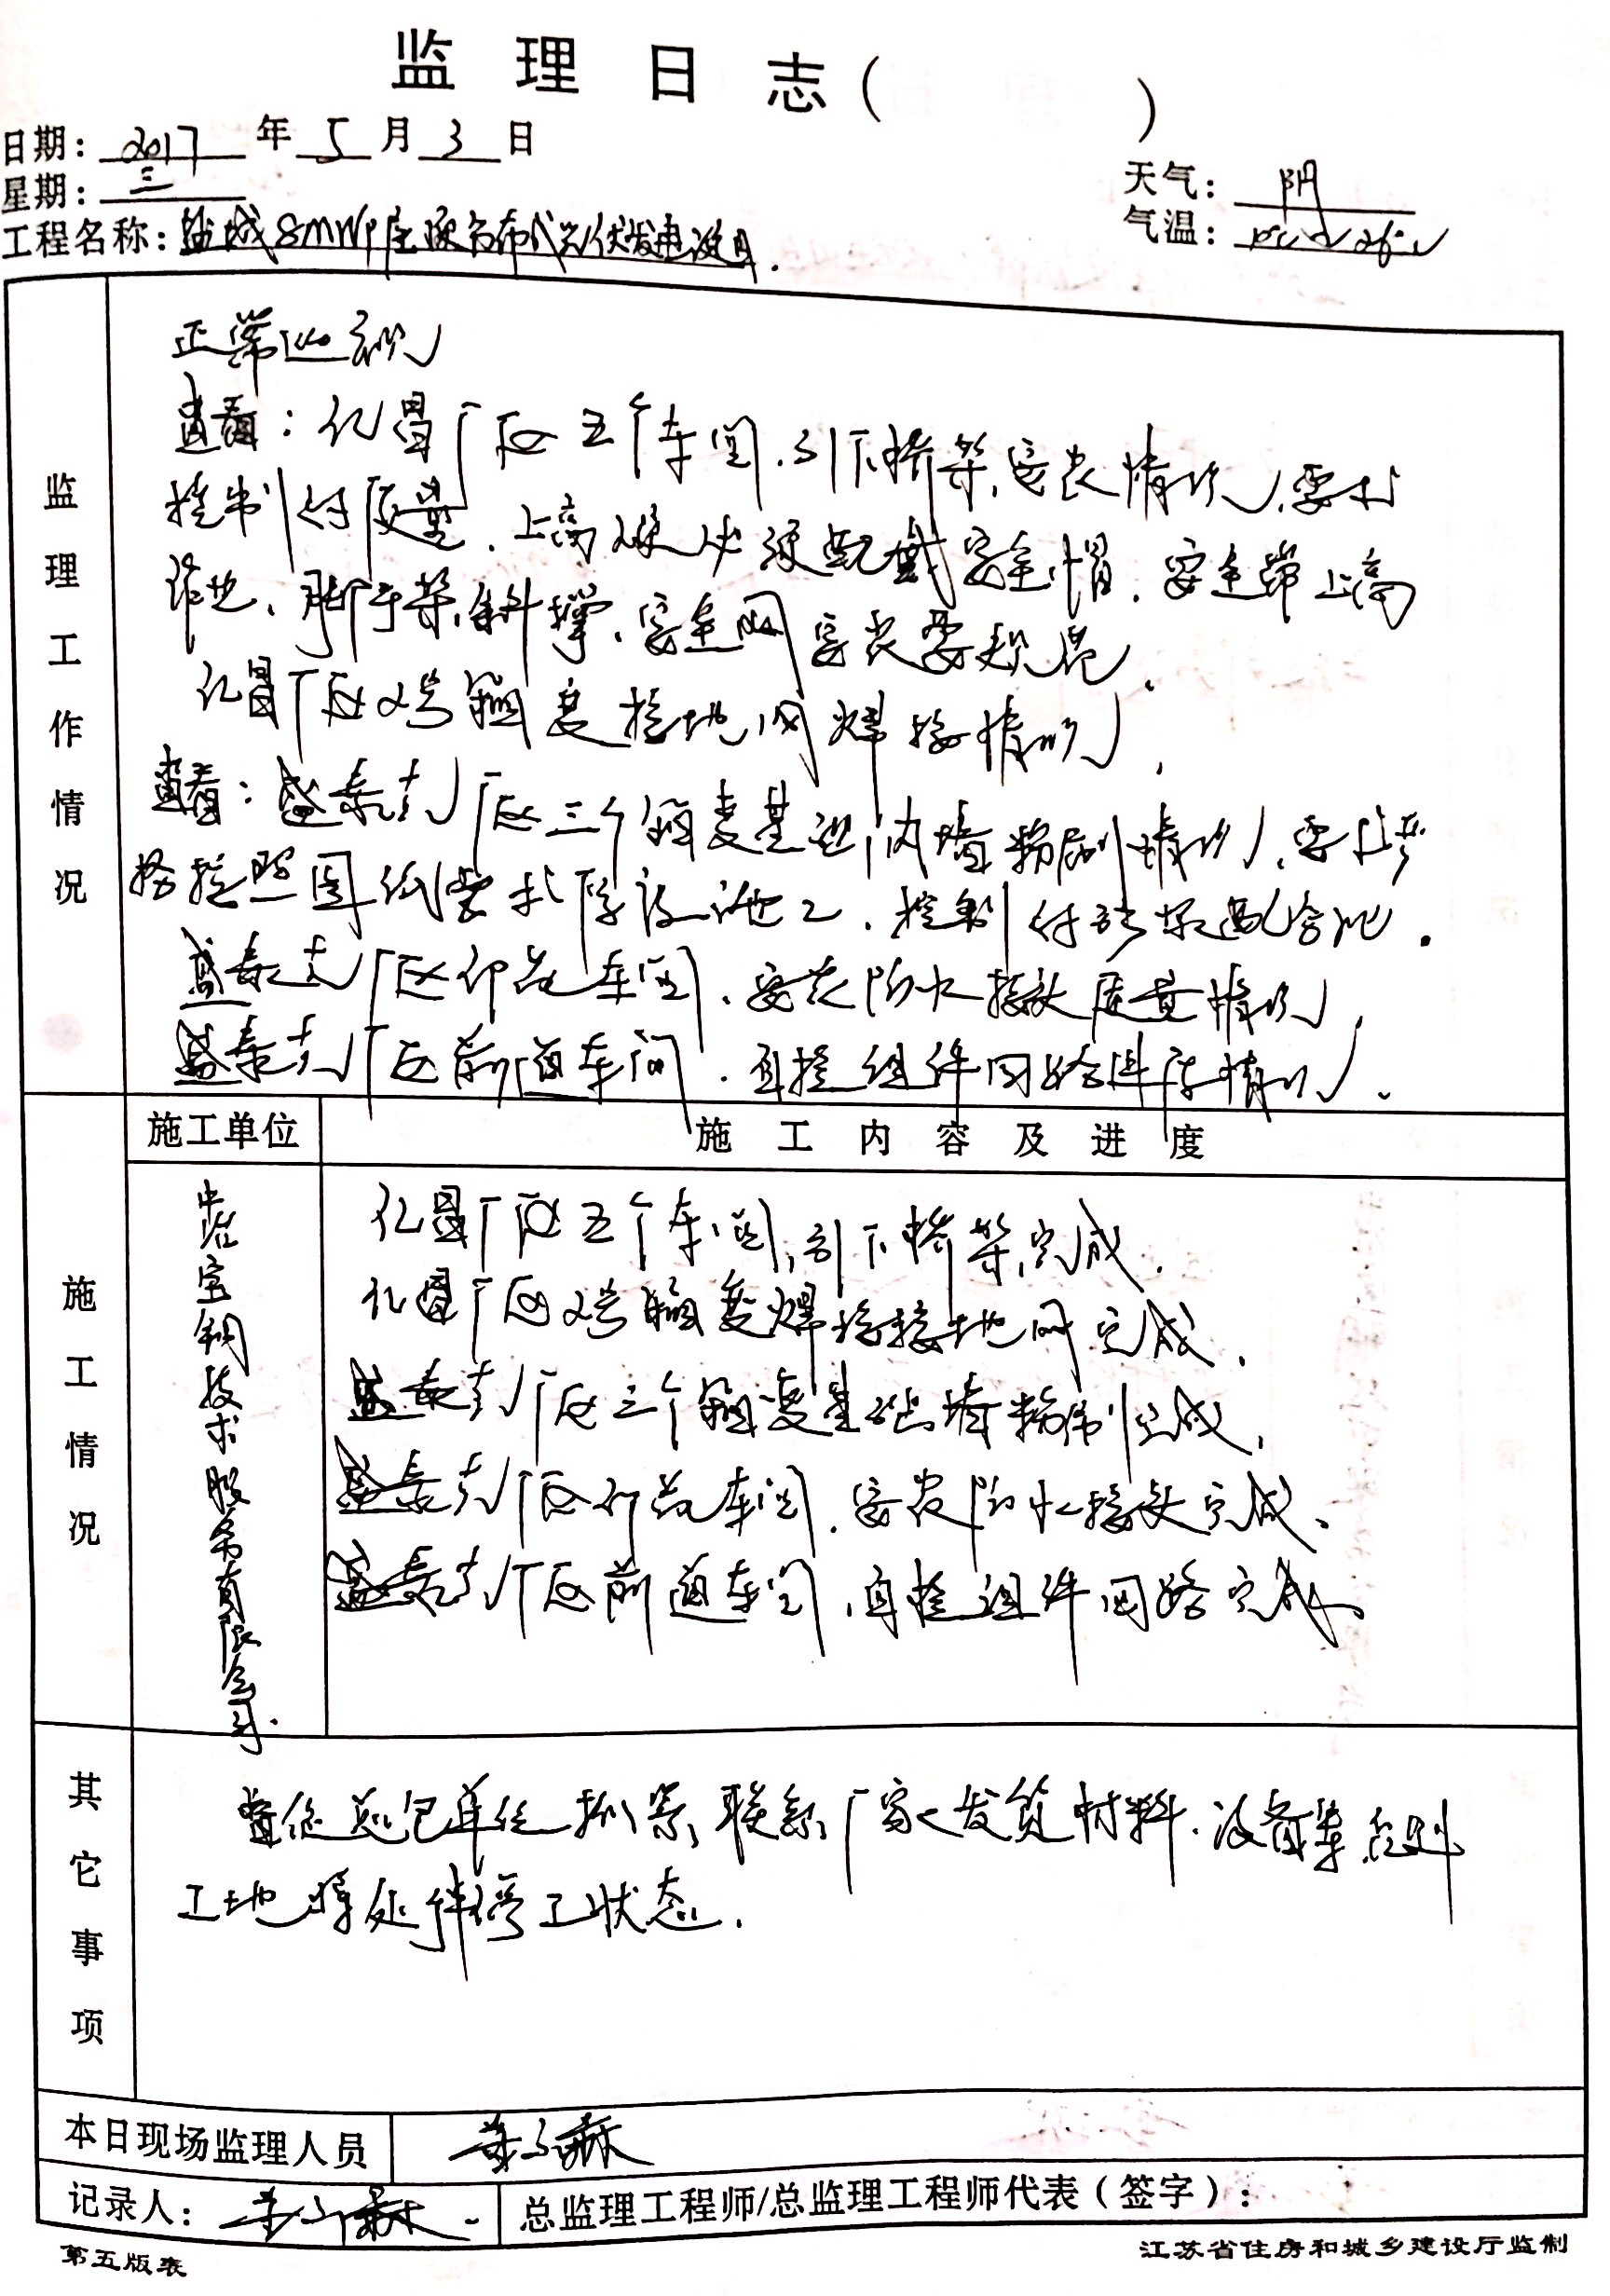 监理日志（ ）
日期：2017年5月3日
星期：三
天气：阴
气温：
工程名称：盐城8MWP屋顶分布式光伏发电项目.
监理工作情况
正常巡视
查看：亿昌厂区五个车间.引下桥架,安装情况,要求
控制好质量.上高梯必须配戴安全帽.安全带上高
作业、脚手架,斜撑.安全网安装要规范.
亿昌厂区2号箱变接地网焊接情况.
查看：盛泰克厂区三个箱变基础内墙粉刷情况.要求严
格按照图纸要求 施工.控制好砂浆配合比.
盛泰克厂区印花车间.安装防水接头质量情况.
盛泰克厂区前道车间.自检组件回路 情况.
施工情况
施工单位
施工内容及进度
宝钢技术服务有限公司.
亿昌厂区五个车间,引下桥架,完成.
亿昌厂区2号箱变焊接接地网完成.
盛泰克厂区三个箱变基础墙粉刷完成.
盛泰克厂区印花车间.安装防水接头完成、
盛泰克厂区前道车间,自检组件回路完成、
其它事项
督促总包单位抓紧联系厂家发货材料.设备等,否则
工地将处 停工状态.
本日现场监理人员
记录人：
总监理工程师/总监理工程师代表（签字）：
第五版表
江苏省住房和城乡建设厅监制